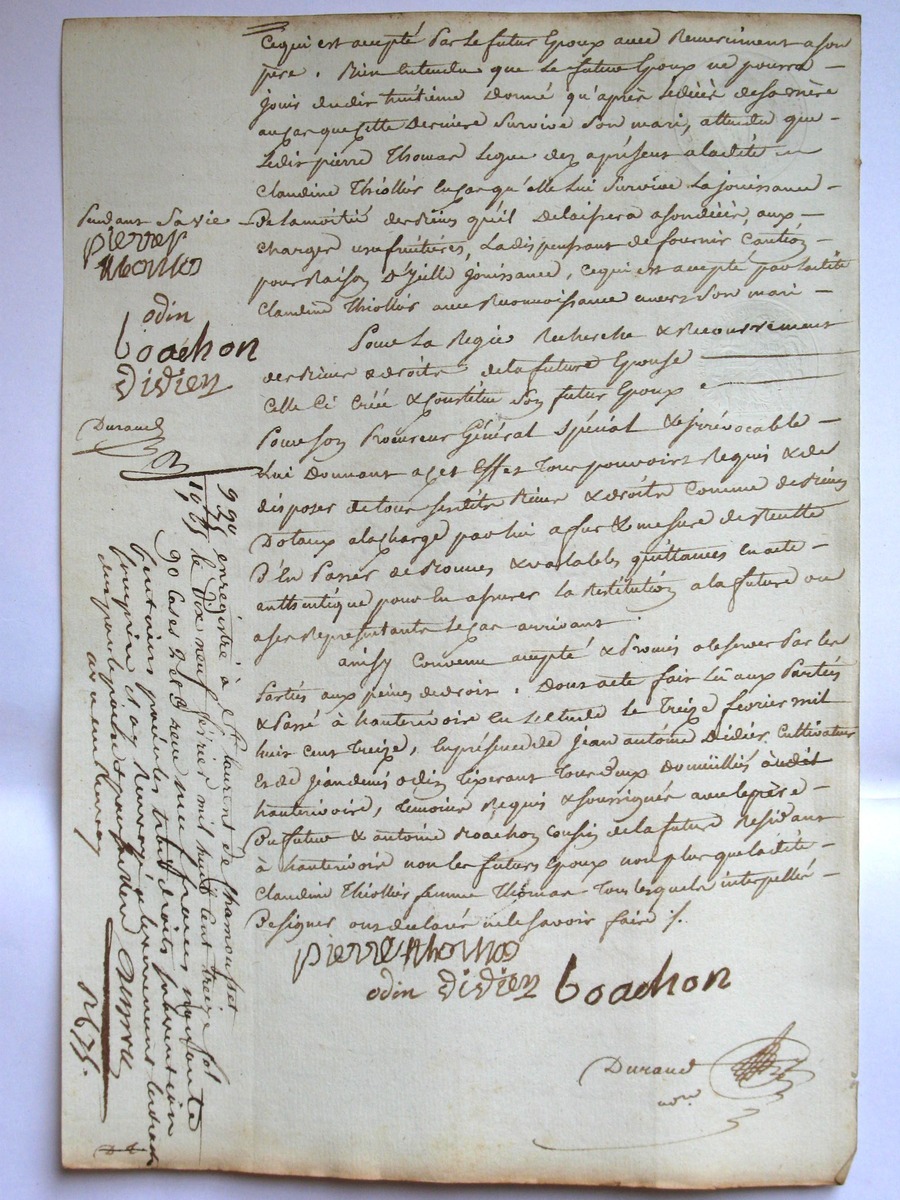 Ce qui est accepté par le futur Epoux avec Remerciment a son
père. Bien Entendu que le futur Epoux ne pourra
jouir dudit huitième donné qu'après le décès de sa mère
au cas que cette Dernière Survive Son mari, attendu que
Ledit pierre Thomas Legue dez aprésent a ladite
Claudine Thiollier En cas qu'elle lui Survive La jouissance
De la moitié des Biens qu'il Delaissera a son décès, aux
charges usufruitières, La dispensant de fournir Caution
pour Raison D'ycelle jouissance, ce qui est accepté par ladite
Claudine Thiollier avec Reconnoissance envers Son mari
Pour La Regie Recherche & Recouvrement
des Biens & droits de la future Epouse
Celle Ci Créé & Constitue Son futur Epoux
Pour Son Procureur Général Spécial & irrévocable
Lui Donnant a cet Effet Tous pouvoirs Requis & de
disposer de tous Sesdits Biens & droits Comme de Biens
Dotaux a la charge par lui a fur & mesure de Recette
D'En Passer de Bonnes & valables quittances En acte
authentique pour En assurer La Restitution a la future ou
a ses Représentants le cas arrivant
ainsy Convenu accepté & Promis observer Par les
Parties aux peines de droit. Dont acte fait Lû aux Parties
& Passé à hauterivoire En l'étude le Treize février mil
huit cent Treize, En présence de Jean antoine Didier Cultivateur
Et de Jean denis odin Tixerant Tous Deux Domiciliés audit
hauterivoire, Temoins Requis & Soussignés avec le père
Du futur & antoine Boachon Cousin de la future Résidant
à hauterivoire non les futurs Epoux non plus que ladite
Claudine Thiollier femme Thomas Tous lesquels interpellés
De signer ont déclaré ne le Savoir faire ./.
pierre thomas
odin Didier boachon
Durand
nore
Pendant Sa vie
pierre
thomas
odin
boachon
Didier
Durand
enregistré à St laurent de chamousset
le dix neuf février mil huit cent treize fol
90 cases 2 et 3 reçu